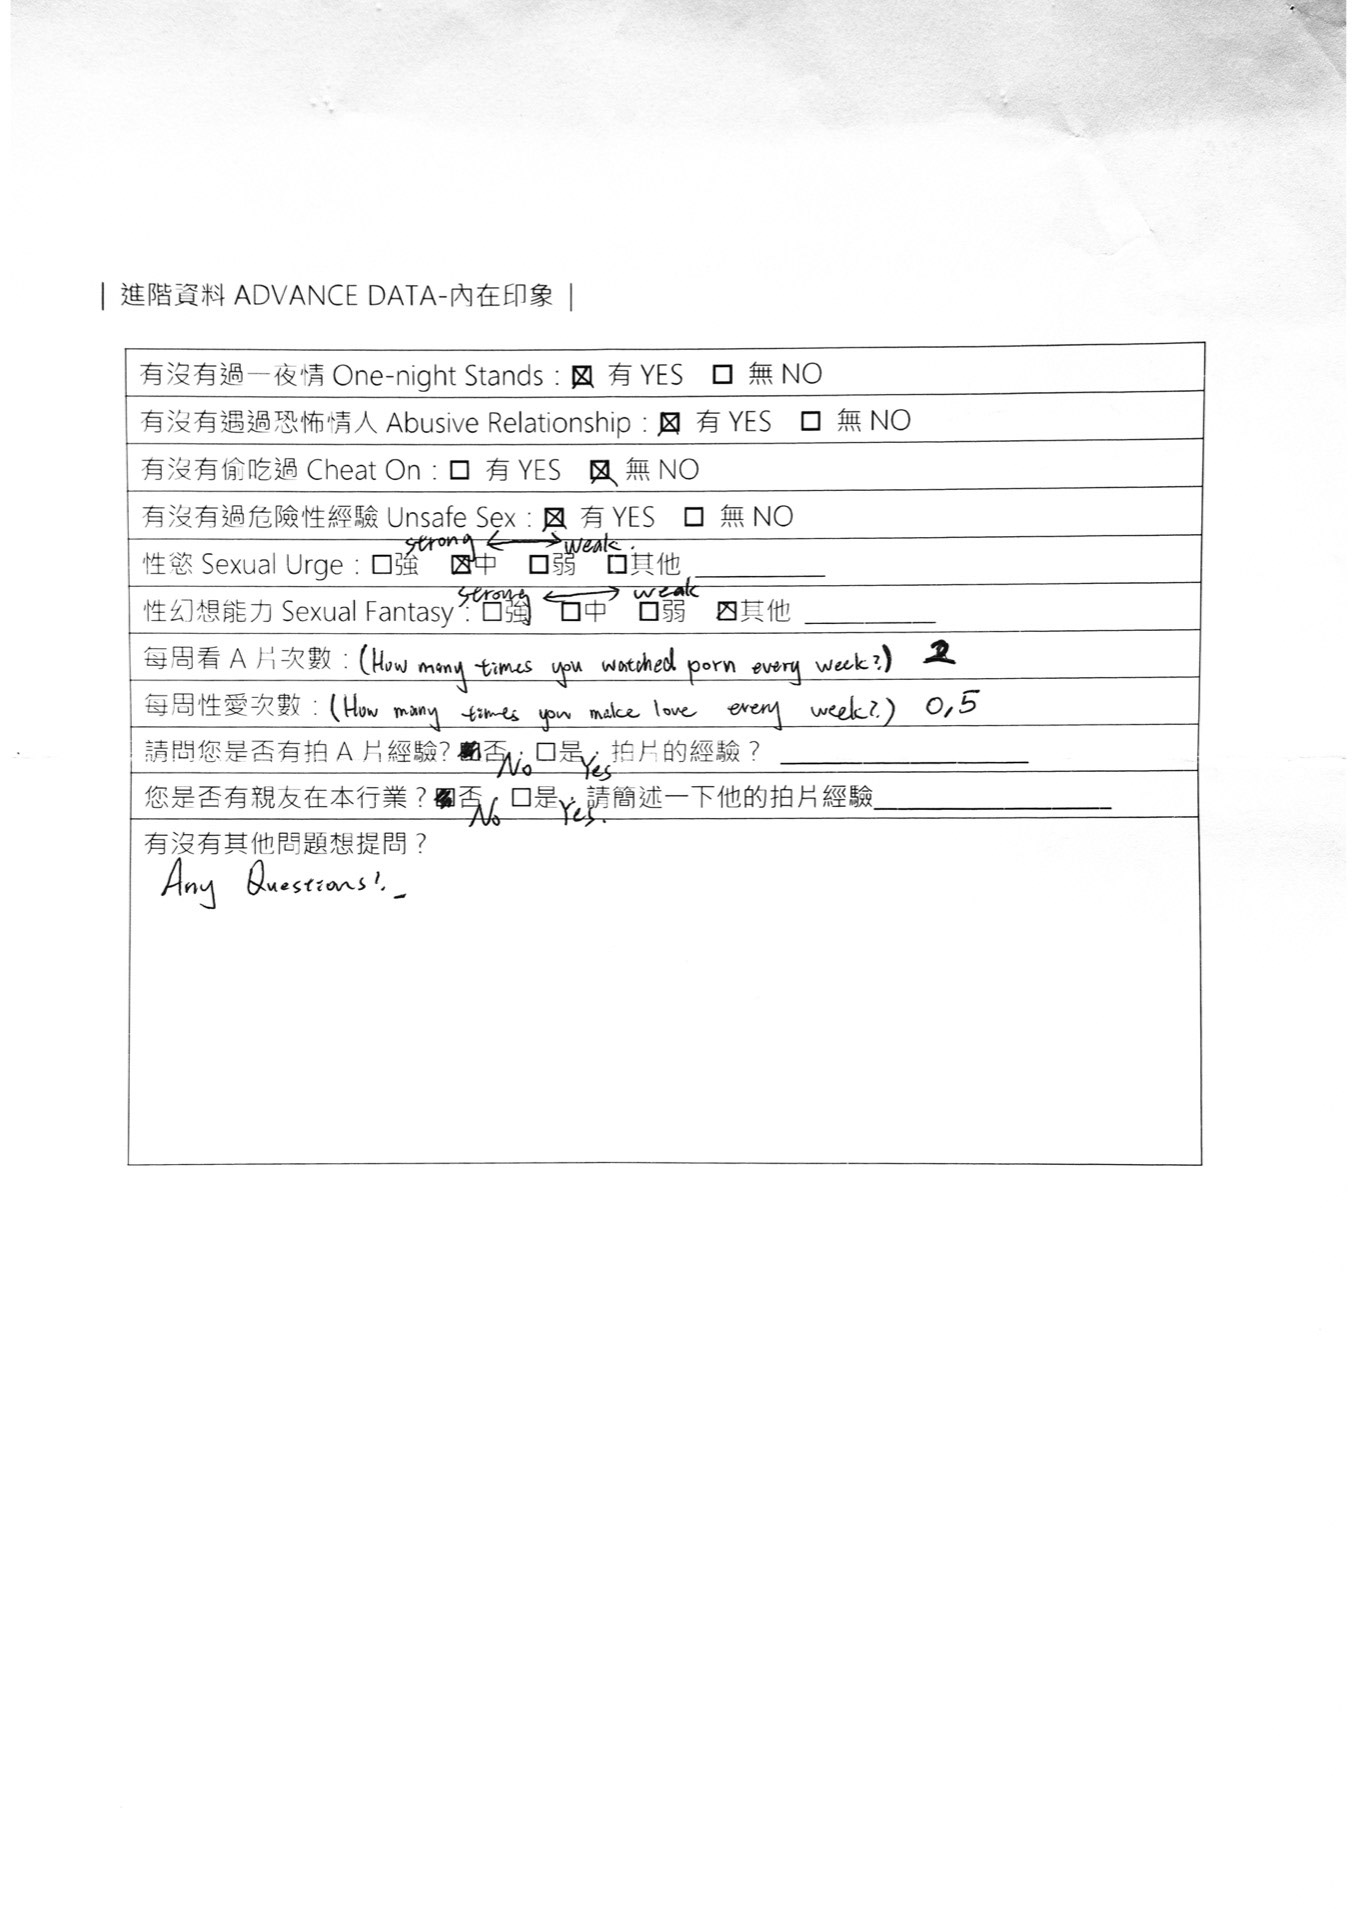 | 進階資料 ADVANCE DATA-內在印象 |
有沒有過一夜情 One-night Stands : ☒ 有 YES ☐ 無 NO
有沒有遇過恐怖情人 Abusive Relationship : ☒ 有 YES ☐ 無 NO
有沒有偷吃過 Cheat On : ☐ 有 YES ☒ 無 NO
有沒有過危險性經驗 Unsafe Sex : ☒ 有 YES ☐ 無 NO
strong ⟷ weak.
性慾 Sexual Urge : ☐強 ☒中 ☐弱 ☐其他 __________
strong ⟷ weak
性幻想能力 Sexual Fantasy : ☐強 ☐中 ☐弱 ☒其他 __________
每周看 A 片次數 : (How many times you watched porn every week?) 2
每周性愛次數 : (How many times you make love every week?) 0,5
請問您是否有拍 A 片經驗? ☒否, ☐是, 拍片的經驗? __________
No Yes
您是否有親友在本行業? ☒否, ☐是, 請簡述一下他的拍片經驗__________
No Yes.
有沒有其他問題想提問?
Any Questions?